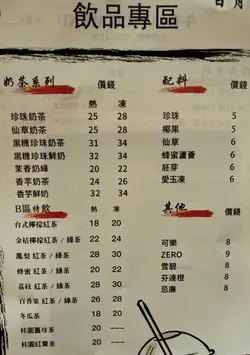 日月
飲品專區
奶茶系列 價錢
熱 凍
珍珠奶茶 25 28
仙草奶茶 25 28
黑糖珍珠奶茶 31 34
黑糖珍珠鮮奶 31 34
茉香奶綠 20 22
香芋奶茶 25 28
香芋鮮奶 31 34
B區特飲 熱 凍
台式檸檬紅茶 18 20
金桔檸檬紅茶/綠茶 22 24
鳳梨 紅茶/綠茶 28 30
蜂蜜 紅茶/綠茶 20 22
荔枝 紅茶/綠茶 28 30
百香果 紅茶/綠茶 22 24
冬瓜茶 18 20
桂圓薑母茶 20 ---
桂圓紅棗茶 20 ---
配料 價錢
珍珠 5
椰果 5
仙草 6
蜂蜜蘆薈 6
胚芽 6
愛玉凍 6
其他 價錢
可樂 8
ZERO 9
雪碧 8
芬達橙 8
忌廉 8